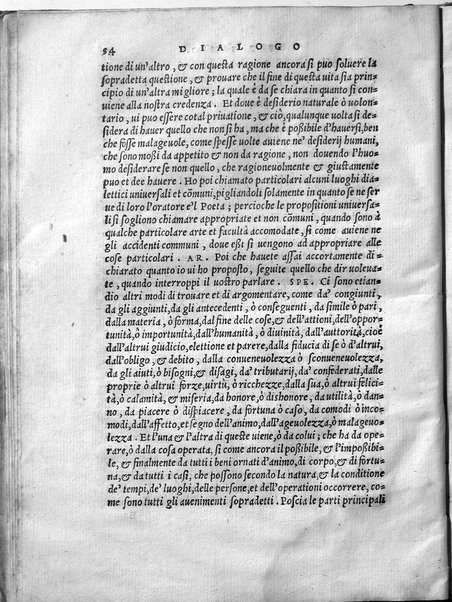 54 DIALOGO
tione di un'altro, & con questa ragione ancora si puo soluere la
sopradetta questione, & prouare che il fine di questa uita sia prin-
cipio di un'altra migliore; la quale è da se chiara in quanto si con-
uiene alla nostra credenza. Et doue è desiderio naturale ò uolon-
tario, ui puo essere cotal priuatione, & ciò, qualunque uolta si de-
sidera di hauer quello che non si ha, ma che è poßibile d'hauersi, ben
che fosse malageuole, come spesse uolte auiene ne' desiderij humani,
che sono moßi da appetito & non da ragione, non douendo l'huo-
mo desiderare se non quello, che ragioneuolmente & giustamente
puo et dee hauere. Ho poi chiamato particolari alcuni luoghi dia-
lettici uniuersali et cōmuni, pigliandoli solamente in quanto se ne ser
ue di loro l'oratore e'l Poeta; percioche le propositioni uniuersa-
li si sogliono chiamare appropriate et non cōmuni, quando sono à
qualche particolare arte et facultà accomodate, si come auiene ne
gli accidenti communi, doue eßi si uengono ad appropriare alle
cose particolari. AR. Poi che hauete assai accortamente di-
chiarato quanto io ui ho proposto, seguite quello che dir uoleua-
te, quando interroppi il uostro parlare. SPE. Ci sono etian-
dio altri modi di trouare et di argomentare, come da' congiunti,
da gli aggiunti, da gli antecedenti, ò conseguenti, da simile ò pari,
dalla materia, ò forma, dal fine delle cose, & dell'attioni, dell'oppor-
tunità, ò importunità, dall'humanità, ò diuinità, dall'autorità, cioè
dall'altrui giudicio, elettione et parere, dalla fiducia di se ò d'altrui,
dall'obligo, & debito, dalla conueneuolezza ò sconueneuolezza,
da gli aiuti, ò bisogni, & disagi, da' tributarij, da' confederati, dalle
proprie ò altrui forze, uirtù, ò ricchezze, dalla sua, ò altrui felici-
tà, ò calamità, & miseria, da honore, ò dishonore, da utilità, ò dan-
no, da piacere ò dispiacere, da fortuna ò caso, da comodi ò inco-
modi, dall'affetto, et segno dell'animo, dall'ageuolezza, ò malageuo-
lezza. Et l'una & l'altra di queste uiene, ò da colui; che ha da ope-
rare, ò dalla cosa operata, si come ancora il poßibile, & l'impoßibi-
le, & finalmente da tutti i beni ornati d'animo, di corpo, & di fortu-
na, & da tutti i casi, che possono secondo la natura, & la conditione
de' tempi, de' luoghi, delle persone, et dell'operationi occorrere, co-
me sono tutti gli auenimenti sopradetti. Poscia le parti principali